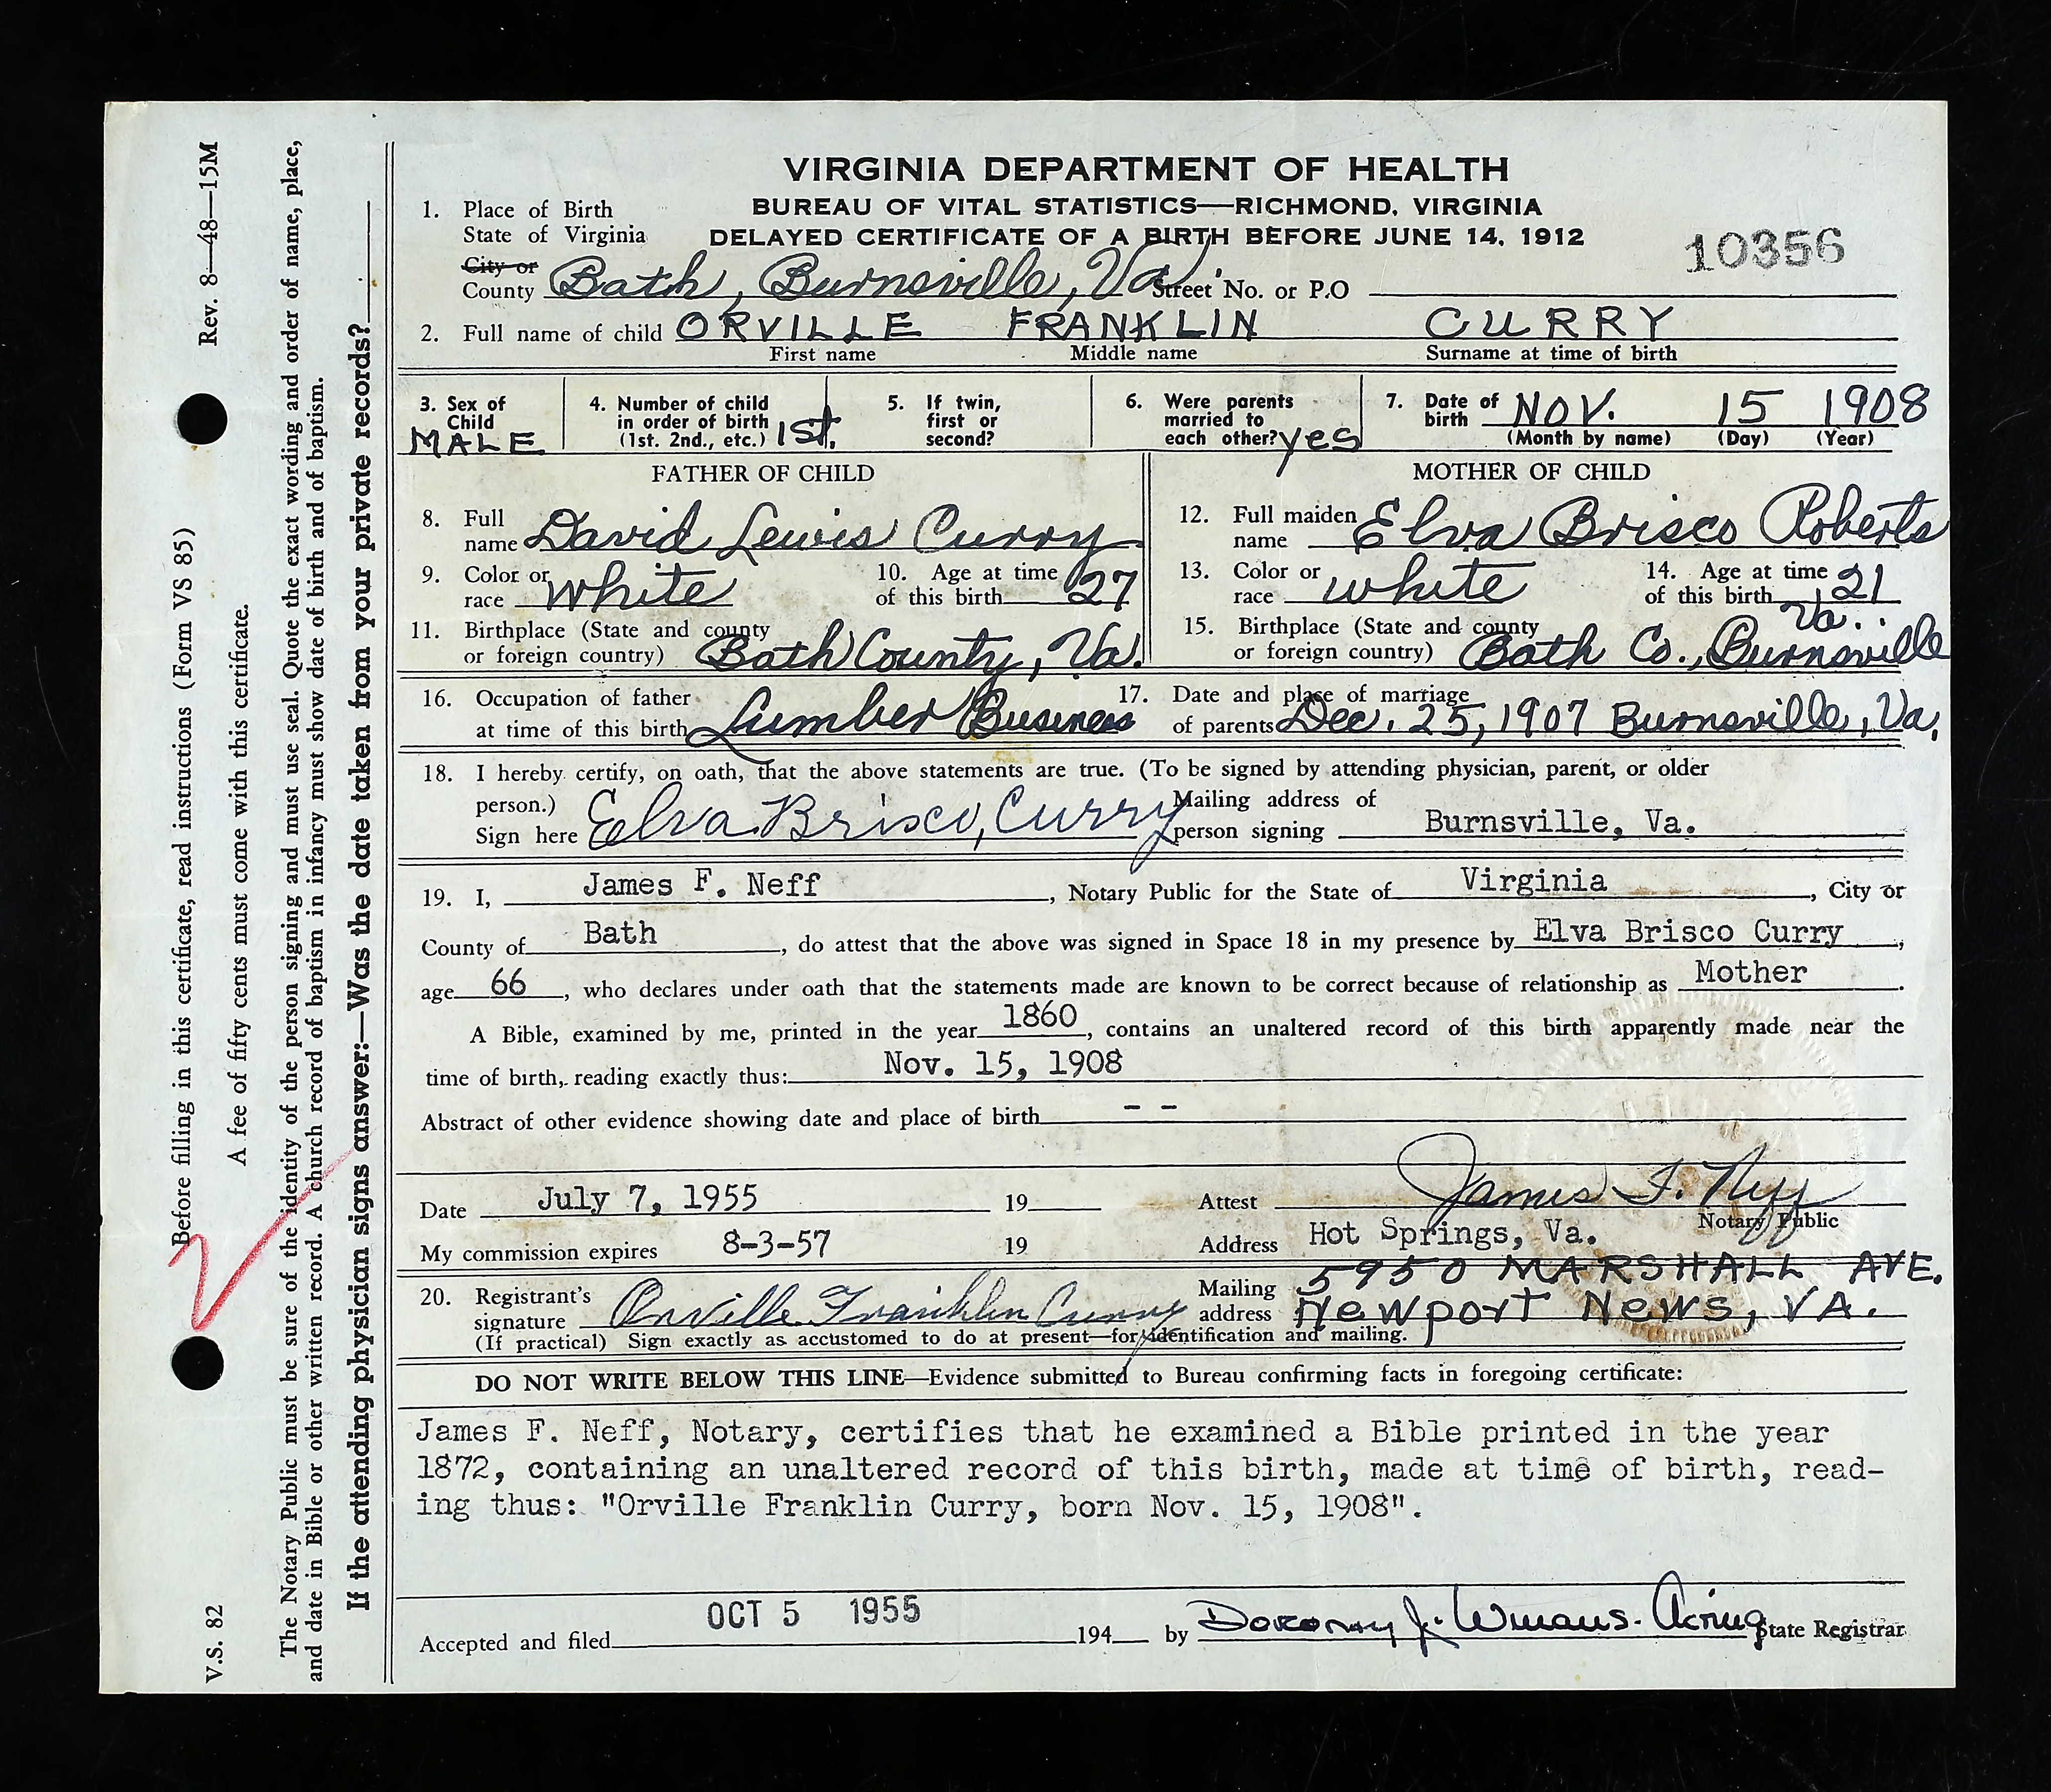 VIRGINIA DEPARTMENT OF HEALTH
BUREAU OF VITAL STATISTICS—RICHMOND, VIRGINIA
DELAYED CERTIFICATE OF A BIRTH BEFORE JUNE 14, 1912
10356
1. Place of Birth
State of Virginia
City or
County Bath, Burnsville, Va. Street No. or P.O
2. Full name of child ORVILLE FRANKLIN CURRY
First name Middle name Surname at time of birth
3. Sex of Child MALE
4. Number of child in order of birth (1st. 2nd., etc.) 1st.
5. If twin, first or second?
6. Were parents married to each other? yes
7. Date of birth NOV. 15 1908
(Month by name) (Day) (Year)
FATHER OF CHILD
8. Full name David Lewis Curry
9. Color or race white 10. Age at time of this birth 27
11. Birthplace (State and county or foreign country) Bath County, Va.
MOTHER OF CHILD
12. Full maiden name Elva Brisco Roberts
13. Color or race white 14. Age at time of this birth 21
15. Birthplace (State and county or foreign country) Bath Co., Burnsville Va.
16. Occupation of father at time of this birth Lumber Business
17. Date and place of marriage of parents Dec. 25, 1907 Burnsville, Va.
18. I hereby certify, on oath, that the above statements are true. (To be signed by attending physician, parent, or older
person.)
Sign here Elva Brisco, Curry Mailing address of person signing Burnsville, Va.
19. I, James F. Neff, Notary Public for the State of Virginia, City or
County of Bath, do attest that the above was signed in Space 18 in my presence by Elva Brisco Curry,
age 66, who declares under oath that the statements made are known to be correct because of relationship as Mother.
A Bible, examined by me, printed in the year 1860, contains an unaltered record of this birth apparently made near the
time of birth, reading exactly thus: Nov. 15, 1908
Abstract of other evidence showing date and place of birth - -
Date July 7, 1955 19 Attest James F. Neff
Notary Public
My commission expires 8-3-57 19 Address Hot Springs, Va.
20. Registrant's signature Orville Franklin Curry Mailing address 5950 MARSHALL AVE.
NEWPORT NEWS, VA.
(If practical) Sign exactly as accustomed to do at present—for identification and mailing.
DO NOT WRITE BELOW THIS LINE—Evidence submitted to Bureau confirming facts in foregoing certificate:
James F. Neff, Notary, certifies that he examined a Bible printed in the year
1872, containing an unaltered record of this birth, made at time of birth, read-
ing thus: "Orville Franklin Curry, born Nov. 15, 1908".
OCT 5 1955
Accepted and filed 194 by Dorothy J. Winans - Acting State Registrar
V.S. 82 Before filling in this certificate, read instructions (Form VS 85) Rev. 8—48—15M
A fee of fifty cents must come with this certificate.
The Notary Public must be sure of the identity of the person signing and must use seal. Quote the exact wording and order of name, place,
and date in Bible or other written record. A church record of baptism in infancy must show date of birth and of baptism.
If the attending physician signs answer:—Was the date taken from your private records?